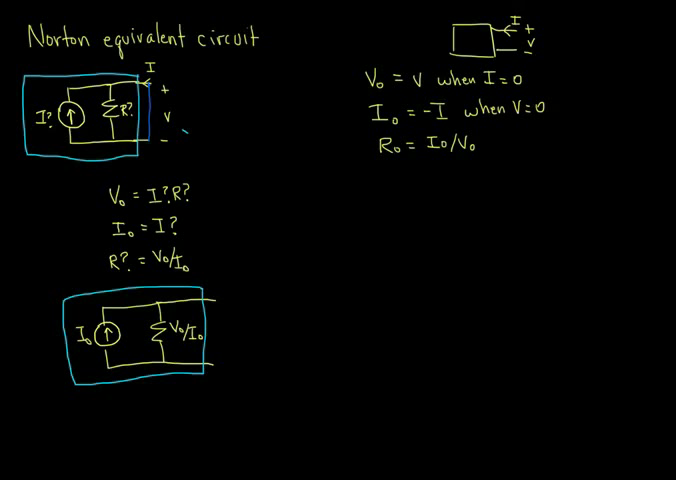 Norton equivalent circuit
I
+
I?
R?
V
-
V₀ = I?R?
I₀ = I?
R? = V₀/I₀
I₀
V₀/I₀
I
+
V
-
V₀ = V when I=0
I₀ = -I when V=0
R₀ = I₀/V₀